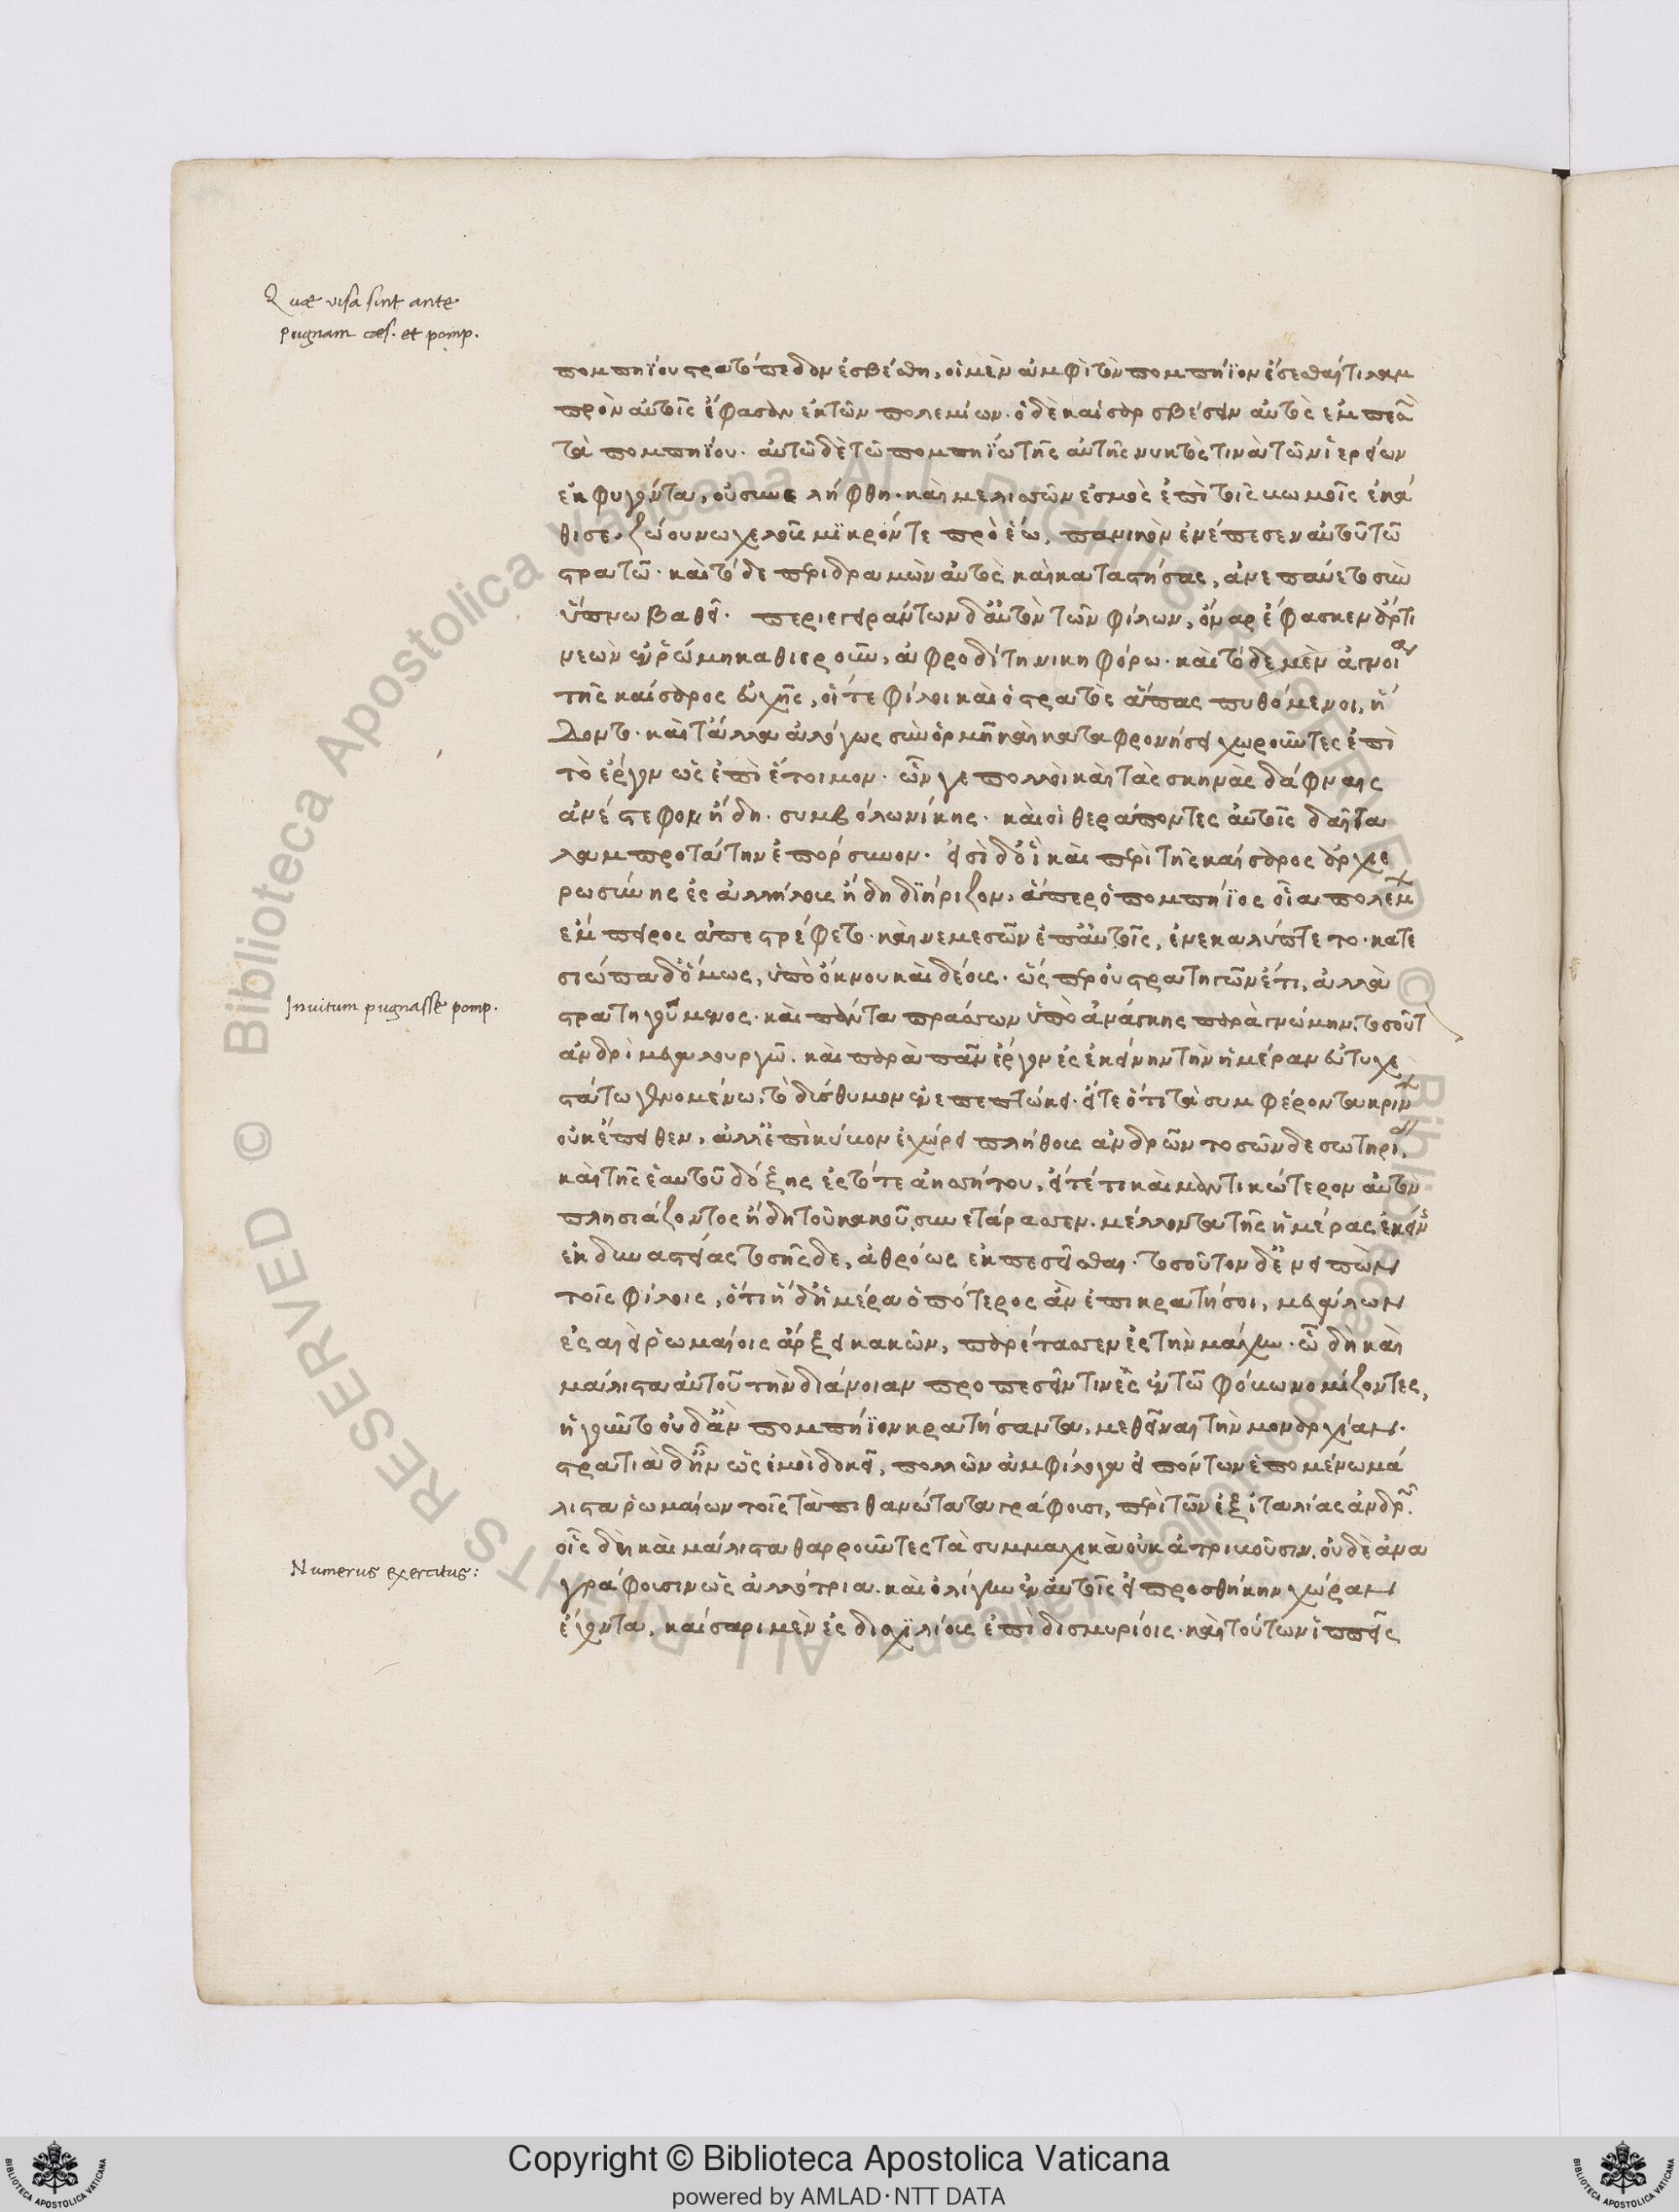 Quæ visa sint ante
pugnam cæs. et pomp.
πομπηΐου στρατόπεδον ἐσβέσθη, οἱ μὲν ἀμφὶ τὸν πομπήϊον ἔσεσθαί τι λαμ
πρὸν αὐτοῖς ἔφασαν ἐκ τῶν πολεμίων. ὁ δὲ καίσαρ σβέσειν αὐτὸς ἐμπεσὼν
τὰ πομπηΐου. αὐτῷ δὲ τῷ πομπηΐῳ τῆς αὐτῆς νυκτός τινὰ τῶν ἱερείων
ἐκφυγόντα, οὐ συνελήφθη. καὶ μελισσῶν ἐσμὸς ἐπὶ τοῖς βωμοῖς ἐκά
θισε, ζώου νωχελοῦς. μικρόν τε πρὸ ἕω, πανικὸν ἐνέπεσεν αὐτοῦ τῷ
στρατῷ. καὶ τόδε περιδραμὼν αὐτὸς καὶ καταστήσας, ἀνεπαύετο σὺν
ὕπνῳ βαθεῖ. περιεγειράντων δ' αὐτὸν τῶν φίλων, ὄναρ ἔφασκεν ἄρτι
νεὼν ἐν ῥώμῃ καθιεροῦν, ἀφροδίτῃ νικηφόρῳ. καὶ τόδε μὲν ἀγνοίᾳ
τῆς καίσαρος εὐχῆς, οἵ τε φίλοι καὶ ὁ στρατὸς ἅπας πυθόμενοι, ἥ
δοντο. καὶ τἄλλα ἀλόγως σὺν ὁρμῇ καὶ καταφρονήσει χωροῦντες ἐπὶ
τὸ ἔργον ὡς ἐπὶ ἕτοιμον. ὧν γε πολλοὶ καὶ τὰς σκηνὰς δάφναις
ἀνέστεφον ἤδη. συμβόλῳ νίκης. καὶ οἱ θεράποντες αὐτοῖς δαῖτα
λαμπροτάτην ἐπόρσυνον. εἰσὶ δ' οἳ καὶ περὶ τῆς καίσαρος ἀρχιε
ρωσύνης ἐς ἀλλήλους ἤδη διήριζον. ἅπερ ὁ πομπήϊος οἷα πολέμων
ἔμπειρος ἀπεστρέφετο. καὶ νεμεσῶν ἐπ' αὐτοῖς, ἐνεκαλύπτετο. κατε
σιώπα δ' ὅμως, ὑπὸ ὄκνου καὶ δέους. ὥσπερ οὐ στρατηγῶν ἔτι, ἀλλὰ
Invitum pugnasse pomp.
στρατηγούμενος. καὶ πάντα πράσσων ὑπὸ ἀνάγκης παρὰ γνώμην. τοσοῦτον
ἀνδρὶ μεγαλουργῷ. καὶ παρὰ πᾶν ἔργον ἐς ἐκείνην τὴν ἡμέραν εὐτυχε
στάτῳ γενομένῳ, τὸ δύσθυμον ἐνεπεπτώκει. εἴτε ὅτι τὰ συμφέροντα κρίνων
οὐκ ἔπειθεν, ἀλλ' ἐπὶ κύβον ἐχώρει πλήθους ἀνδρῶν τοσῶνδε σωτηρίας,
καὶ τῆς ἑαυτοῦ δόξης ἐς τότε ἀηττήτου. εἴτέ τι καὶ μαντικώτερον αὐτὸν
πλησιάζοντος ἤδη τοῦ κακοῦ, συνετάρασσεν. μέλλοντα τῆς ἡμέρας ἐκείνης
ἐκ δυναστείας τοσῆσδε, ἀθρόως ἐκπεσεῖσθαι. τοσοῦτον δ' ἐνειπὼν
τοῖς φίλοις, ὅτι ἥδ' ἡ ἡμέρα ὁπότερος ἂν ἐπικρατήσοι, μεγάλων
ἐς αἰεὶ ῥωμαίοις ἄρξει κακῶν, παρέτασσεν ἐς τὴν μάχην. ᾧ δὴ καὶ
μάλιστα αὐτοῦ τὴν διάνοιαν προπεσεῖν τινὲς ἐν τῷ φόβῳ νομίζοντες,
ἡγοῦντο οὐδ' ἂν πομπήϊον κρατήσαντα, μεθεῖναι τὴν μοναρχίαν.
στρατιὰ δ' ἦν ὡς ἐμοὶ δοκεῖ, πολλῶν ἀμφίλογα εἰπόντων ἑπομένῳ μά
λιστα ῥωμαίων τοῖς τὰ πιθανώτατα γράφουσι, περὶ τῶν ἐξ ἰταλίας ἀνδρῶν.
οἷς δὴ καὶ μάλιστα θαρροῦντες τὰ συμμαχικὰ οὐκ ἀκριβοῦσιν. οὐδὲ ἀνα
Numerus exercitus:
γράφουσιν ὡς ἀλλότρια. καὶ ὀλίγην ἐν αὐτοῖς εἰς προσθήκην χώραν
ἔχοντα, καίσαρι μὲν ἐς δισχιλίους ἐπὶ δισμυρίοις. καὶ τούτων ἱππεῖς
Copyright © Biblioteca Apostolica Vaticana
powered by AMLAD·NTT DATA